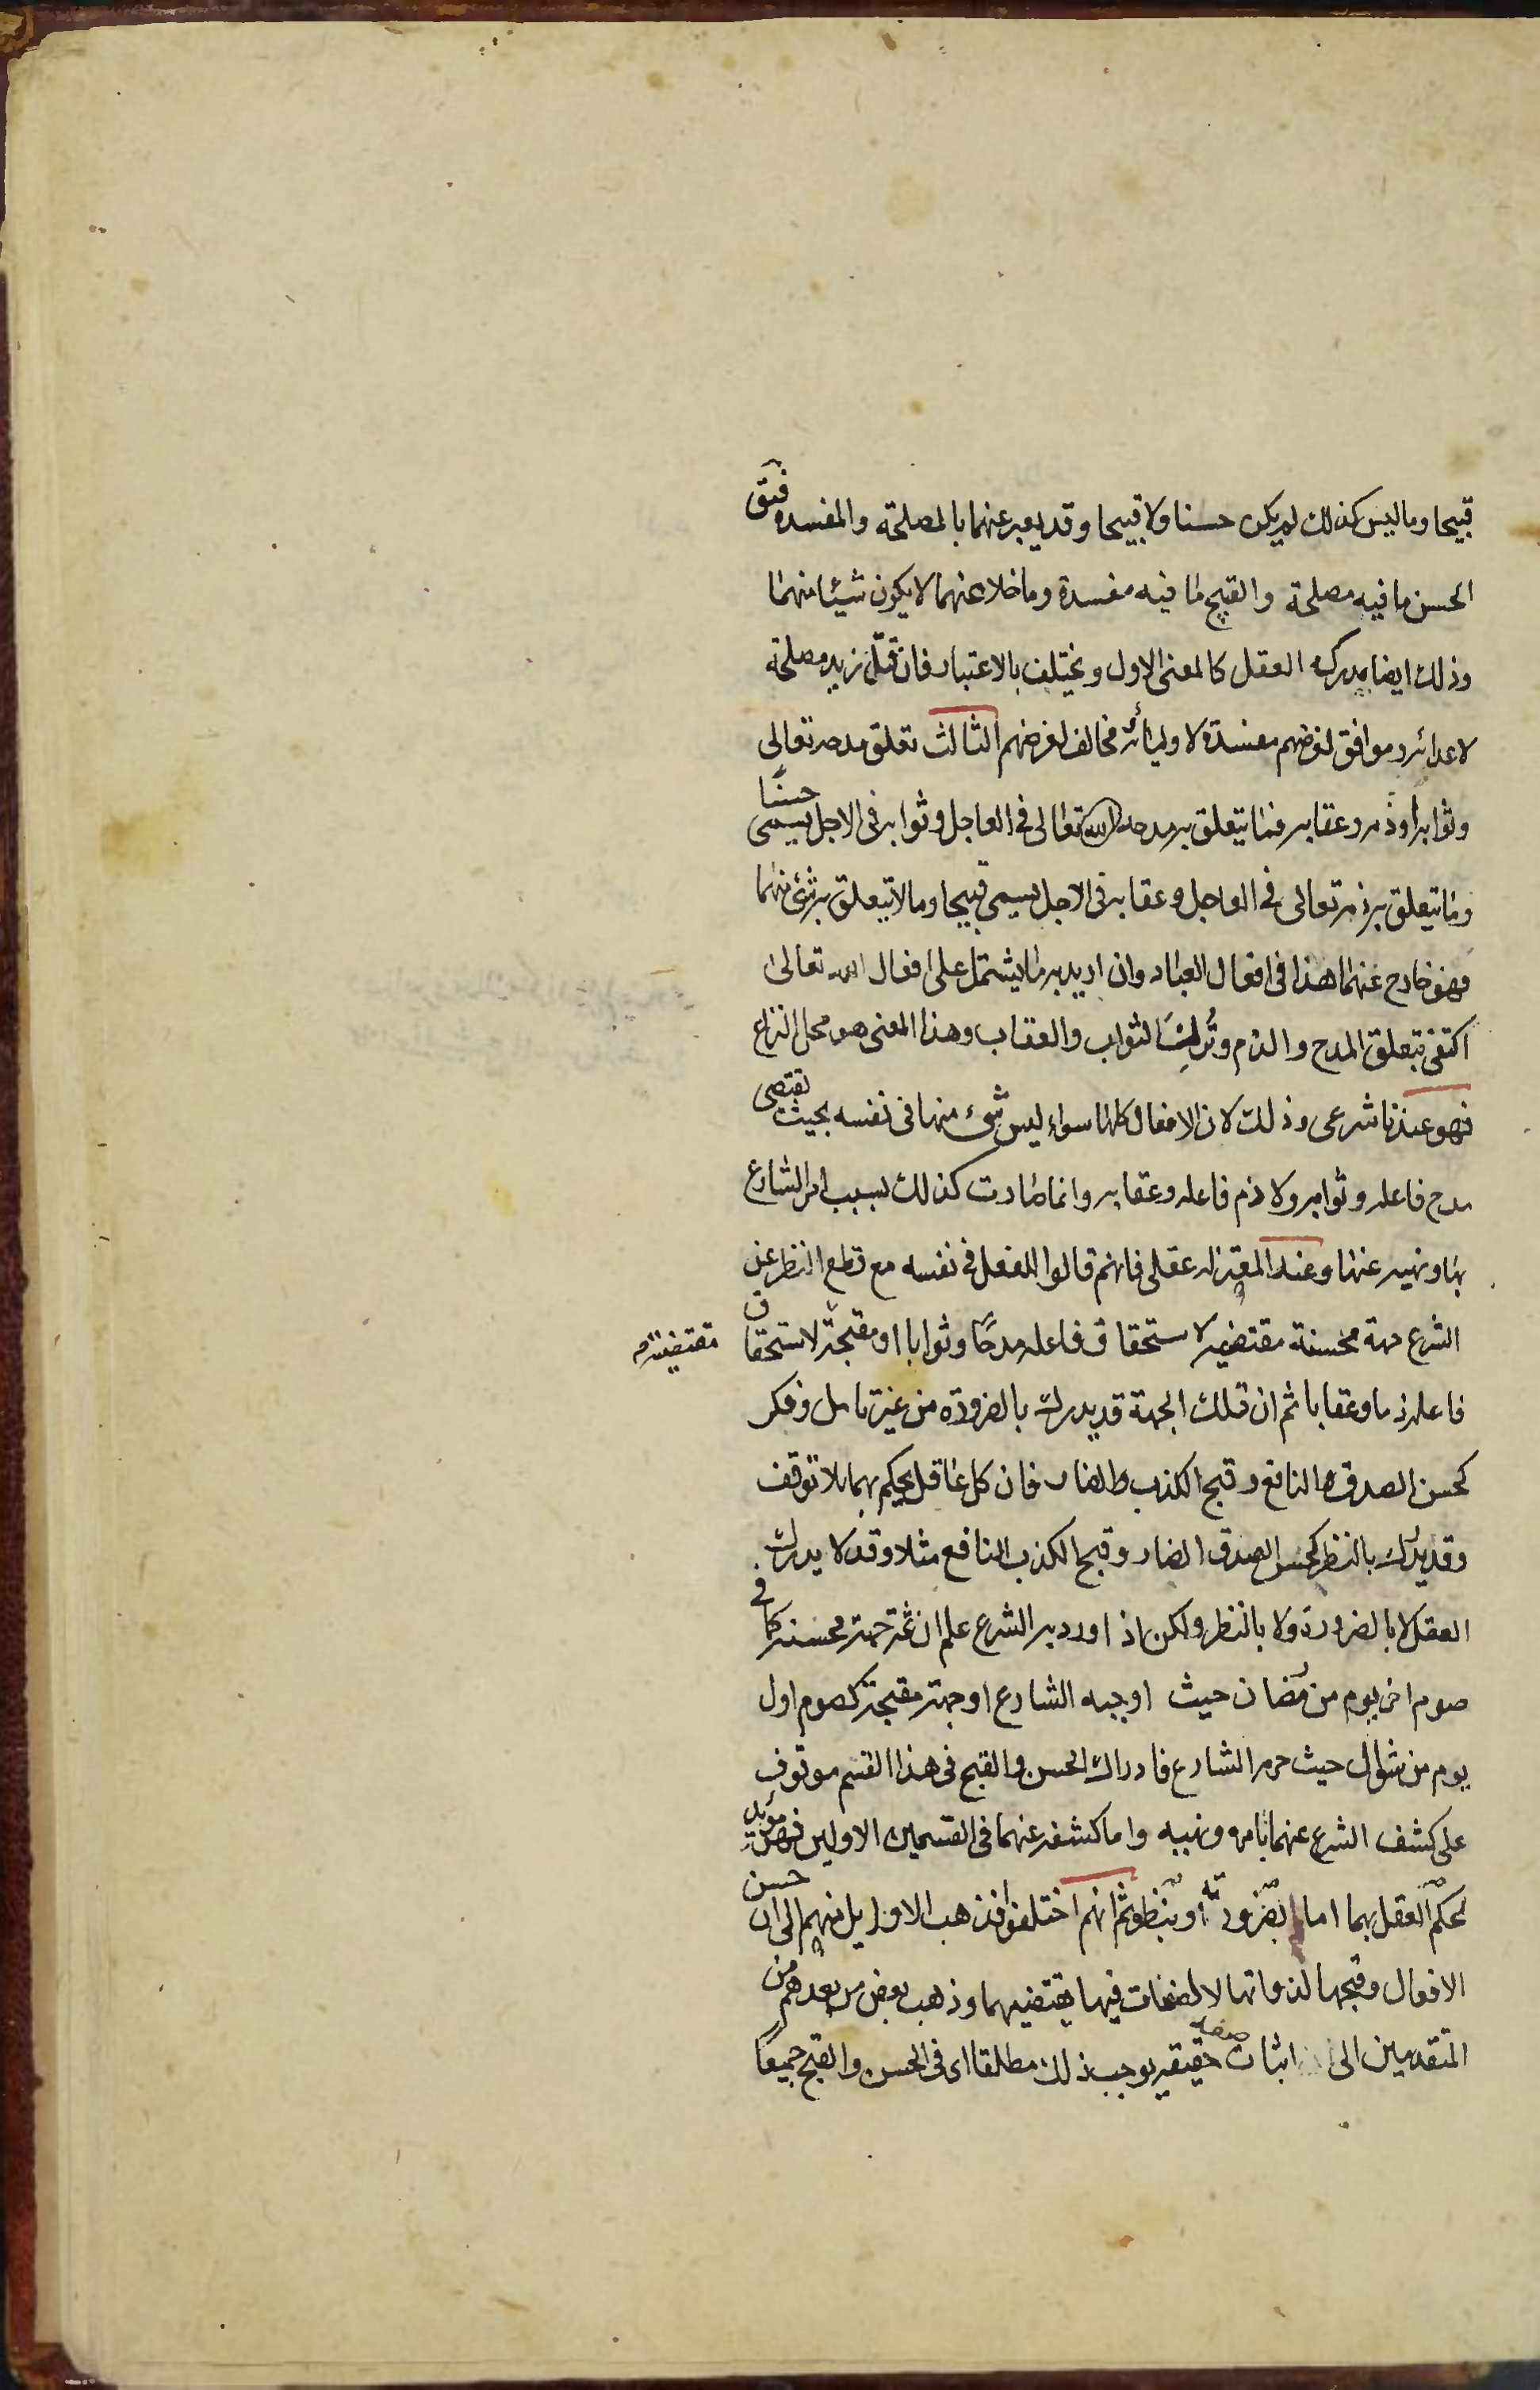 قبيحا وما ليس كذلك لم يكن حسنا ولا قبيحا وقد يعبر عنهما بالمصلحة والمفسده فيق
الحسن ما فيه مصلحة والقبيح ما فيه مفسدة وما خلا عنهما لا يكون شيئا منهما
وذلك ايضا يدركه العقل كالمعنى الاول ويختلف بالاعتبار فان قتل زيد مصلحة
لاعدائه وموافق لغرضهم مفسدة لاوليائه مخالف لغرضهم الثالث تعلق مدحه تعالى
وثوابه او ذمه وعقابه فما يتعلق به مدحه الله تعالى في العاجل وثوابه في الاجل يسمى حسنًا
وما يتعلق به ذمه تعالى في العاجل وعقابه في الاجل يسمى قبيحا وما لا يتعلق به شئ منهما
فهو خارج عنهما هذا في افعال العباد وان اريد به ما يشتمل على افعال الله تعالى
اكتفى بتعلق المدح والذم وتُرِكَ الثواب والعقاب وهذا المعنى هو محل النزاع
فهو عندنا شرعى وذلك لان الافعال كلها سواء ليس شئ منها في نفسه بحيث تقتضى
مدح فاعله وثوابه ولا ذم فاعله وعقابه وانما صارت كذلك بسبب امر الشارع
بها ونهيه عنها وعند المعتزله عقلى فانهم قالوا للفعل في نفسه مع قطع النظر عن
الشرع جهة محسنة مقتضيه لاستحقاق فاعله مدحًا وثوابا او مقبحة لاستحقاق
مقتضيته
فاعله ذما وعقابا ثم ان تلك الجهة قد يدرك بالضرورة من غير تامل وفكر
كحسن الصدق النافع وقبح الكذب الضار فان كل عاقل يحكم بهما بلا توقف
وقد يدرك بالنظر كحسن الصدق الضار وقبح الكذب النافع مثلا وقد لا يدرك
العقل لا بالضرورة ولا بالنظر ولكن اذا ورد به الشرع علم ان ثمة جهة محسنة كما في
صوم اخر يوم من رمضان حيث اوجبه الشارع او جهة مقبحة كصوم اول
يوم من شوال حيث حرمه الشارع فادراك الحسن والقبح في هذا القسم موقوف
على كشف الشرع عنهما بامره ونهيه واما كشفه عنهما في القسمين الاولين فهو مؤيد
لحكم العقل بهما اما بضرورته او بنظره ثم انهم اختلفوا فذهب الاوايل منهم الى ان حسن
الافعال وقبحها لذواتها لا لصفات فيها يقتضيهما وذهب بعض من بعدهم من
المتقدمين الى اثبات صفة حقيقيه يوجب ذلك مطلقا اى في الحسن والقبح جميعًا